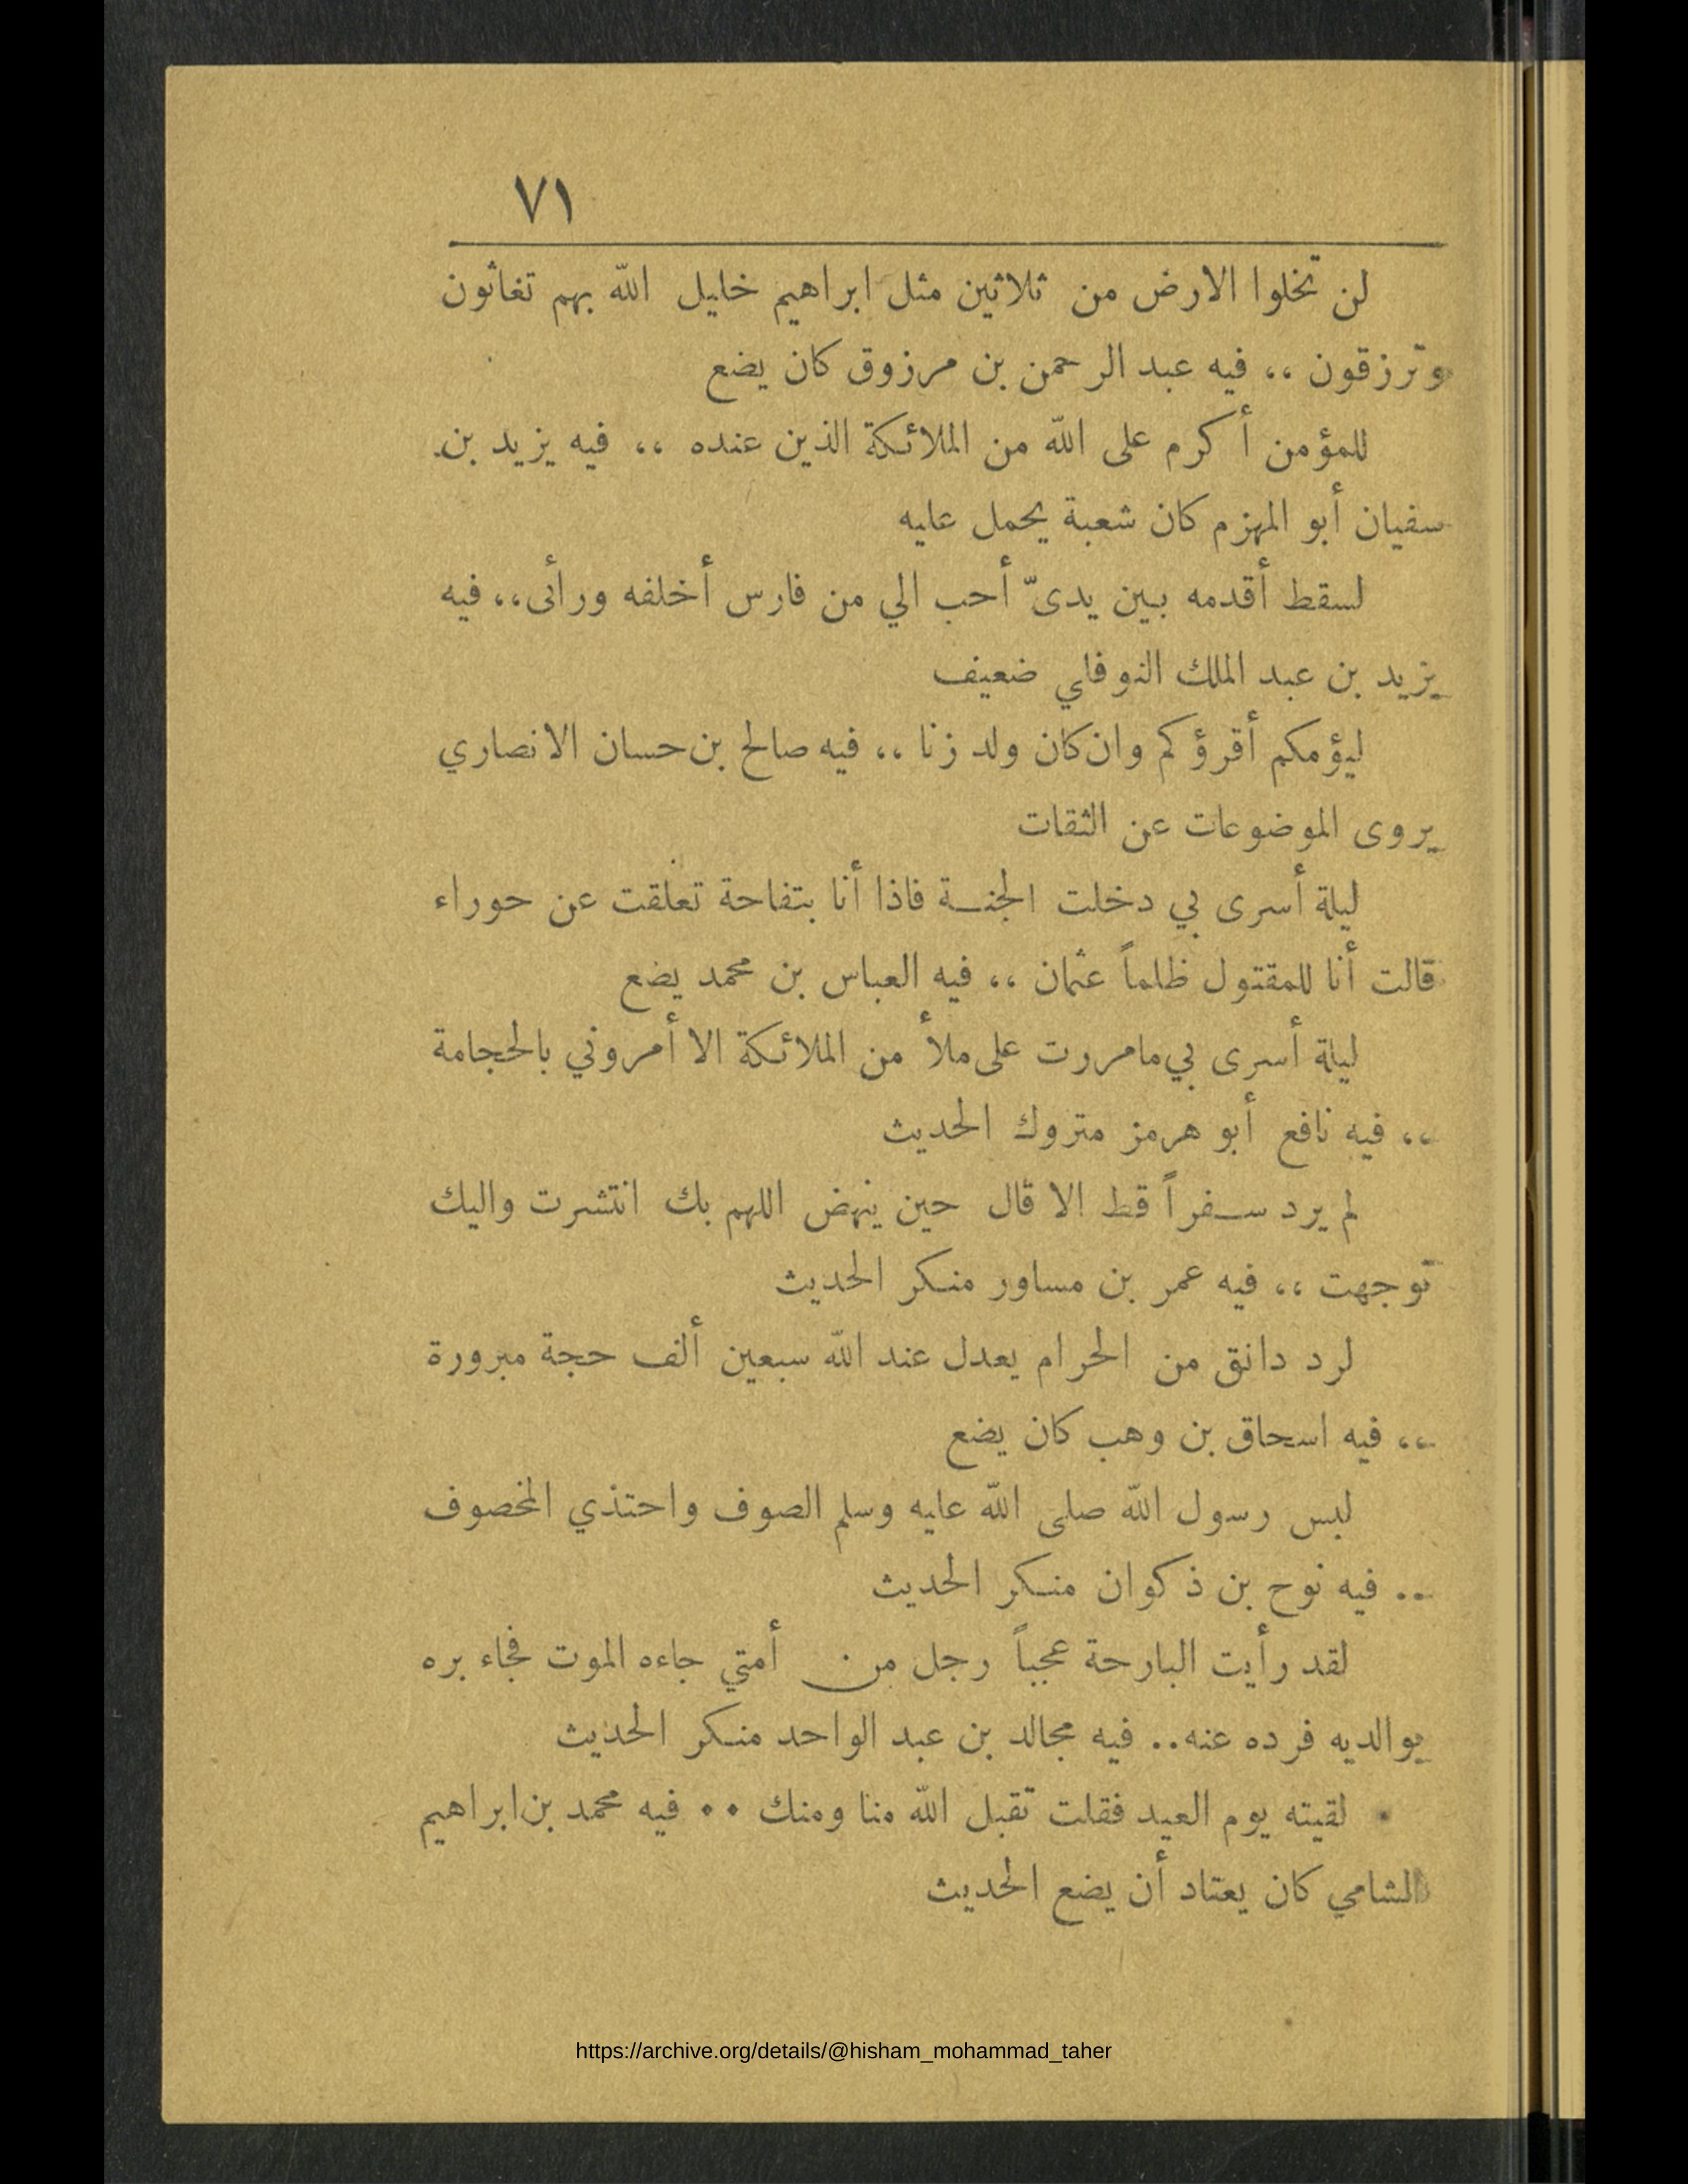 ٧١
لن تخلوا الارض من ثلاثين مثل ابراهيم خليل الله بهم تغاثون
وترزقون ،، فيه عبد الرحمن بن مرزوق كان يضع
للمؤمن أكرم على الله من الملائكة الذين عنده ،، فيه يزيد بن
سفيان أبو المهزم كان شعبة يحمل عليه
لسقط أقدمه بين يدىّ أحب الي من فارس أخلفه ورائى،، فيه
يزيد بن عبد الملك النوفلي ضعيف
ليؤمكم أقرؤكم وان كان ولد زنا ،، فيه صالح بن حسان الانصاري
يروى الموضوعات عن الثقات
ليلة أسرى بي دخلت الجنة فاذا أنا بتفاحة تعلقت عن حوراء
قالت أنا للمقتول ظلماً عثمان ،، فيه العباس بن محمد يضع
ليلة أسرى بي مامررت على ملأ من الملائكة الا أمروني بالحجامة
،، فيه نافع أبو هرمز متروك الحديث
لم يرد سفراً قط الا قال حين ينهض اللهم بك انتشرت واليك
توجهت ،، فيه عمر بن مساور منكر الحديث
لرد دانق من الحرام يعدل عند الله سبعين ألف حجة مبرورة
،، فيه اسحاق بن وهب كان يضع
لبس رسول الله صلى الله عليه وسلم الصوف واحتذي المخصوف
.. فيه نوح بن ذكوان منكر الحديث
لقد رأيت البارحة عجباً رجل من أمتي جاءه الموت فجاء بره
بوالديه فرده عنه.. فيه مجالد بن عبد الواحد منكر الحديث
لقيته يوم العيد فقلت تقبل الله منا ومنك .. فيه محمد بن ابراهيم
الشامي كان يعتاد أن يضع الحديث
https://archive.org/details/@hisham_mohammad_taher